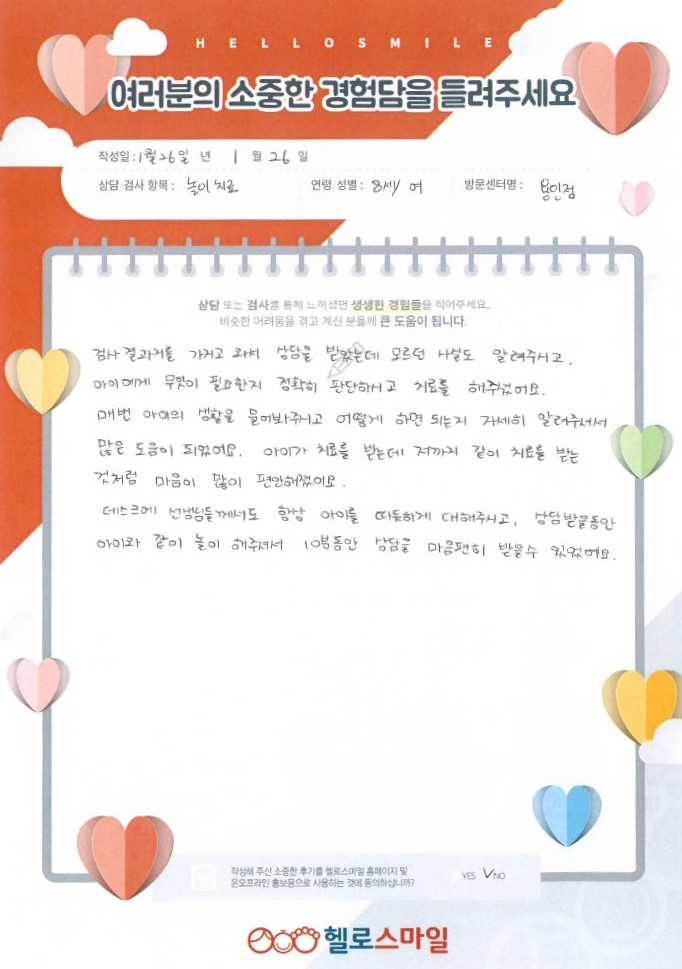 HELLOSMILE
여러분의 소중한 경험담을 들려주세요
작성일 : 1월26일 년 1 월 26 일
상담 검사 항목 : 놀이치료 연령, 성별 : 8세/ 여 방문센터명 : 용인점
상담 또는 검사를 통해 느끼셨던 생생한 경험들을 적어주세요.
비슷한 어려움을 겪고 계신 분들께 큰 도움이 됩니다.
검사결과지를 가지고 와서 상담을 받았는데 모르던 사실도 알려주시고,
아이에게 무엇이 필요한지 정확히 판단하시고 치료를 해주셨어요.
매번 아이의 생활을 물어봐주시고 어떻게 하면 되는지 자세히 알려주셔서
많은 도움이 되었어요. 아이가 치료를 받는데 저까지 같이 치료를 받는
것처럼 마음이 많이 편안해졌어요.
데스크에 선생님들께서도 항상 아이를 따듯하게 대해주시고, 상담받을동안
아이와 같이 놀이 해주셔서 10분동안 상담을 마음편히 받을수 있었어요.
작성해 주신 소중한 후기를 헬로스마일 홈페이지 및
온오프라인 홍보용으로 사용하는 것에 동의하십니까?
YES V NO
헬로스마일